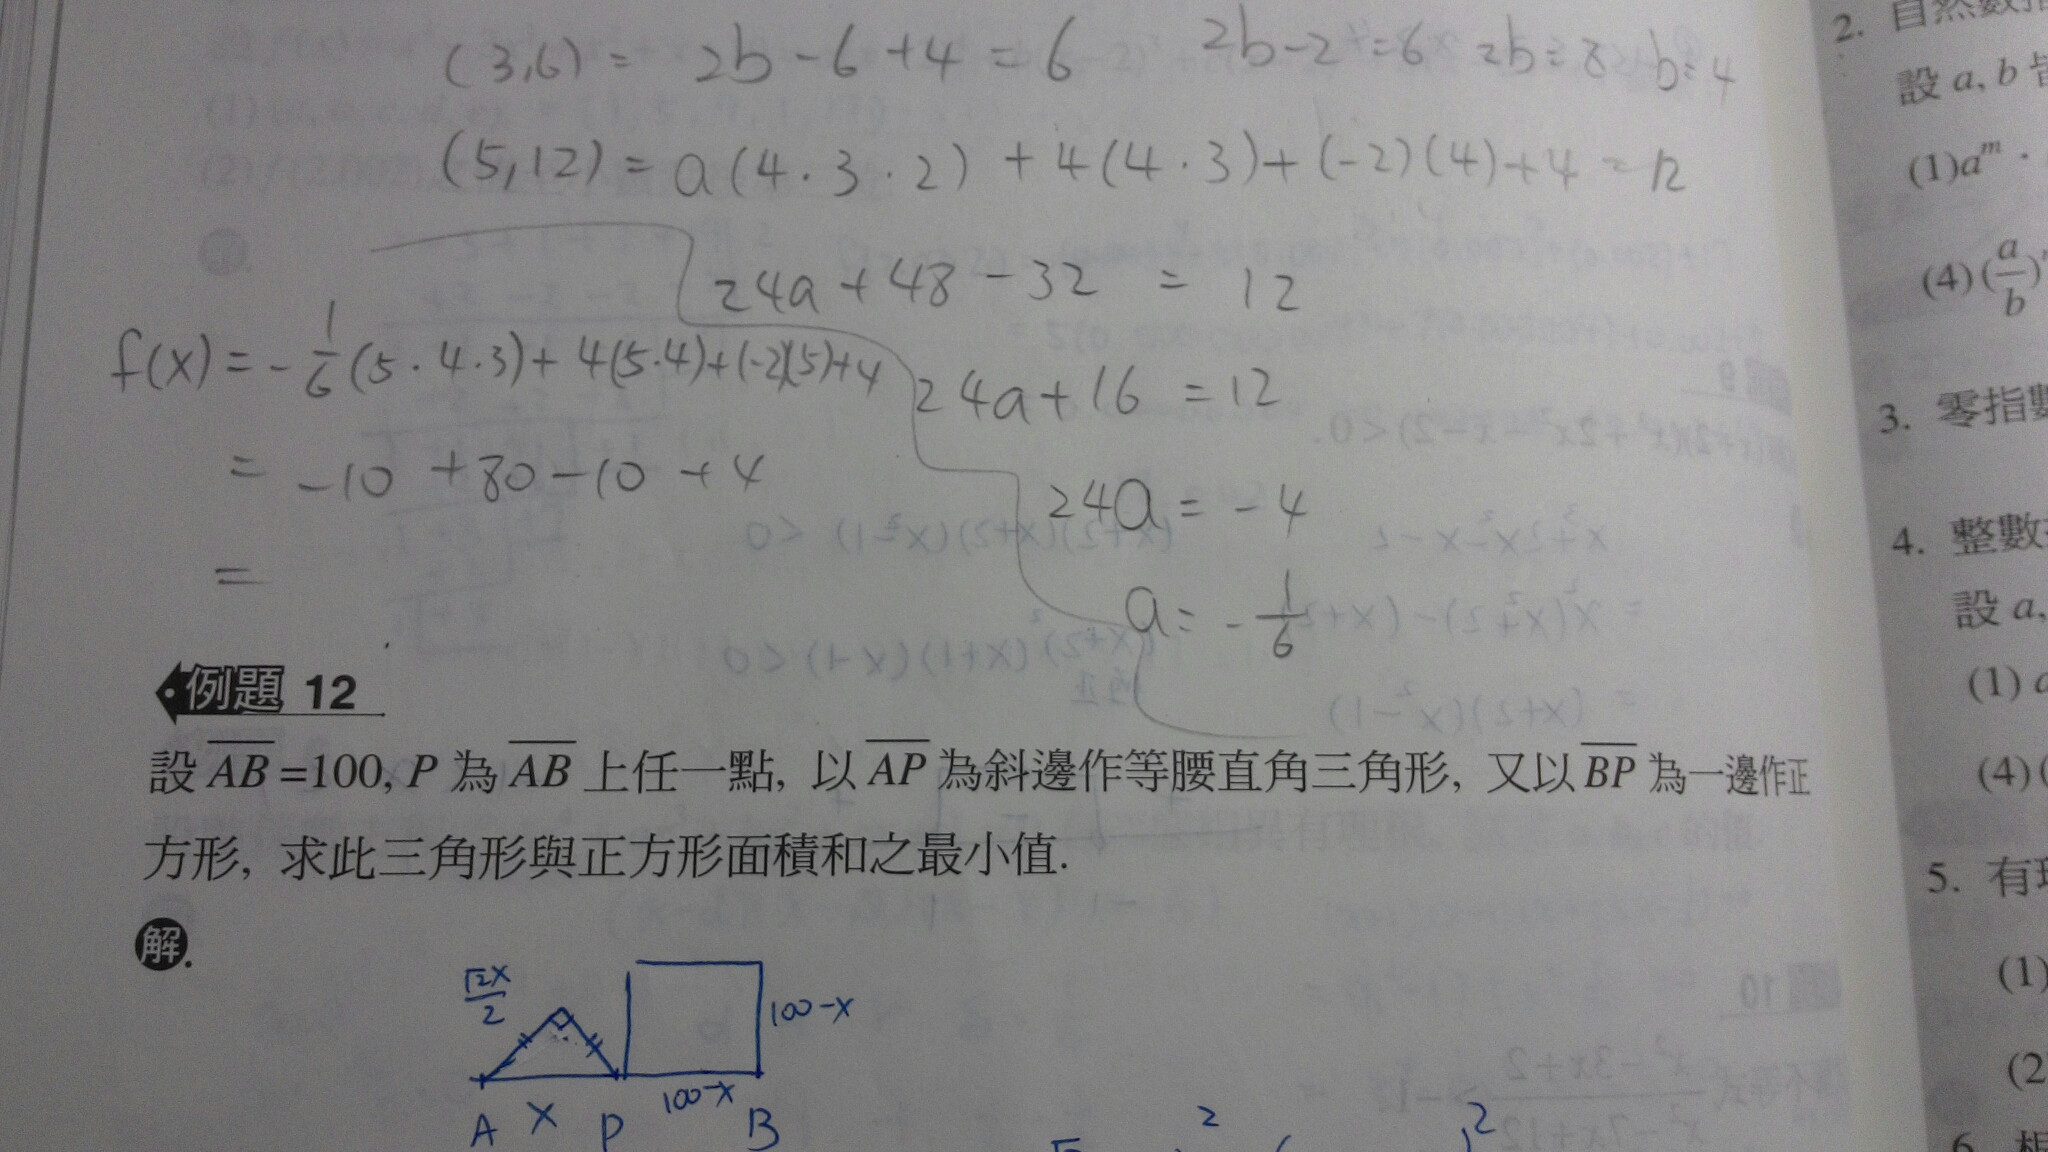 (3,6) = 2b-6+4=6 2b-2=6 2b=8 b=4
(5,12) = a(4·3·2) + 4(4·3)+(-2)(4)+4 = 12
24a+48-32 = 12
f(x) = -1/6(5·4·3)+4(5·4)+(-2)(5)+4
24a+16 = 12
= -10+80-10+4
24a = -4
=
a = -1/6
例題 12
設 AB =100, P 為 AB 上任一點, 以 AP 為斜邊作等腰直角三角形, 又以 BP 為一邊作正
方形, 求此三角形與正方形面積和之最小值.
解.
√2x/2
100-x
100-x
A x P B
2.
設 a, b
(1)a^m ·
(4)(a/b)
3. 零指數
4. 整數
設 a,
(1) a
(4)(
5. 有
(1)
(2
6. 根